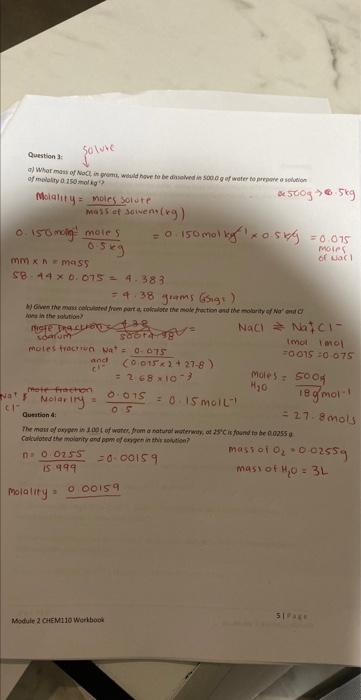 solute
Question 3:
a) What mass of NaCl, in grams, would have to be dissolved in 500.0 g of water to prepare a solution
of molality 0.150 mol kg⁻¹?
Molality = moles solute
mass of solvent (kg)
500g → 0.5kg
0.150 mol kg⁻¹ moles
0.5kg
= 0.150 mol kg⁻¹ x 0.5kg = 0.075
moles
of NaCl
mm x n = mass
58.44 x 0.075 = 4.383
= 4.38 grams (3sigs)
b) Given the mass calculated from part a, calculate the mole fraction and the molarity of Na⁺ and Cl⁻
ions in the solution?
mole fraction = 4.38
sodium 500+4.38
NaCl ⇌ Na⁺, Cl-
1mol 1mol
=0.075 =0.075
moles fraction Na⁺ = 0.075
and Cl⁻ (0.075x2+27.8)
= 2.68 x 10⁻³
moles H₂O = 500g
18 g mol⁻¹
= 27.8mols
Na⁺ & Cl- mole fraction
Molarity = 0.075
0.5
= 0.15 mol L⁻¹
Question 4:
The mass of oxygen in 3.00 L of water, from a natural waterway, at 25°C is found to be 0.0255 g.
Calculated the molarity and ppm of oxygen in this solution?
n = 0.0255
15.999
= 0.00159
mass of O₂ = 0.0255g
mass of H₂O = 3L
Molality = 0.00159
Module 2 CHEM110 Workbook
5 | Page